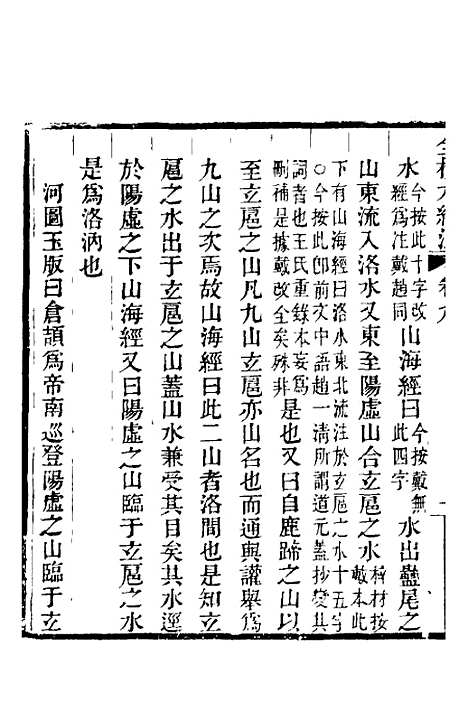 水今按此十字改經爲注戴趙同山海經曰今按戴無此四字水出蠱尾之
山東流入洛水又東至陽虛山合玄扈之水梓材按戴本此
下有山海經曰洛水東北流注於玄扈之水十五字
○今按此卽前文中語趙一清所謂道元蓋抄變其
詞者也王氏重錄本妄爲刪補是據戴改全矣殊非是也又曰自鹿蹄之山以
至玄扈之山凡九山玄扈亦山名也而通與讙舉爲
九山之次焉故山海經曰此二山者洛間也是知玄
扈之水出于玄扈之山蓋山水兼受其目矣其水逕
於陽虛之下山海經又曰陽虛之山臨于玄扈之水
是爲洛汭也
河圖玉版曰倉頡爲帝南巡登陽虛之山臨于玄